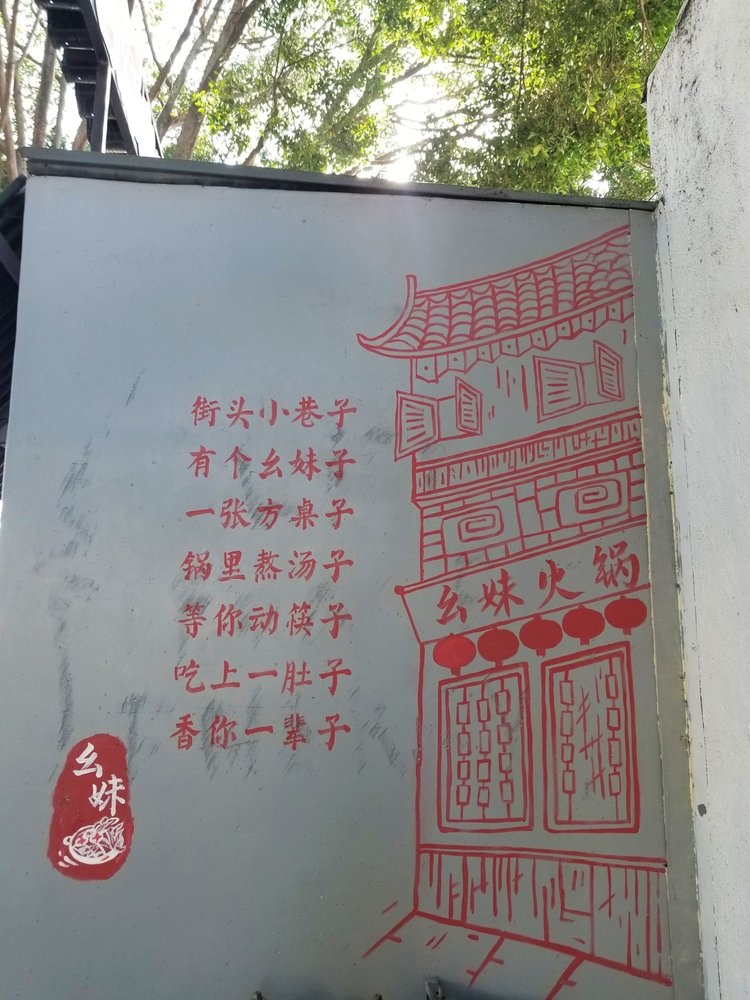 街头小巷子
有个幺妹子
一张方桌子
锅里熬汤子
等你动筷子
吃上一肚子
香你一辈子
幺妹火锅
幺妹